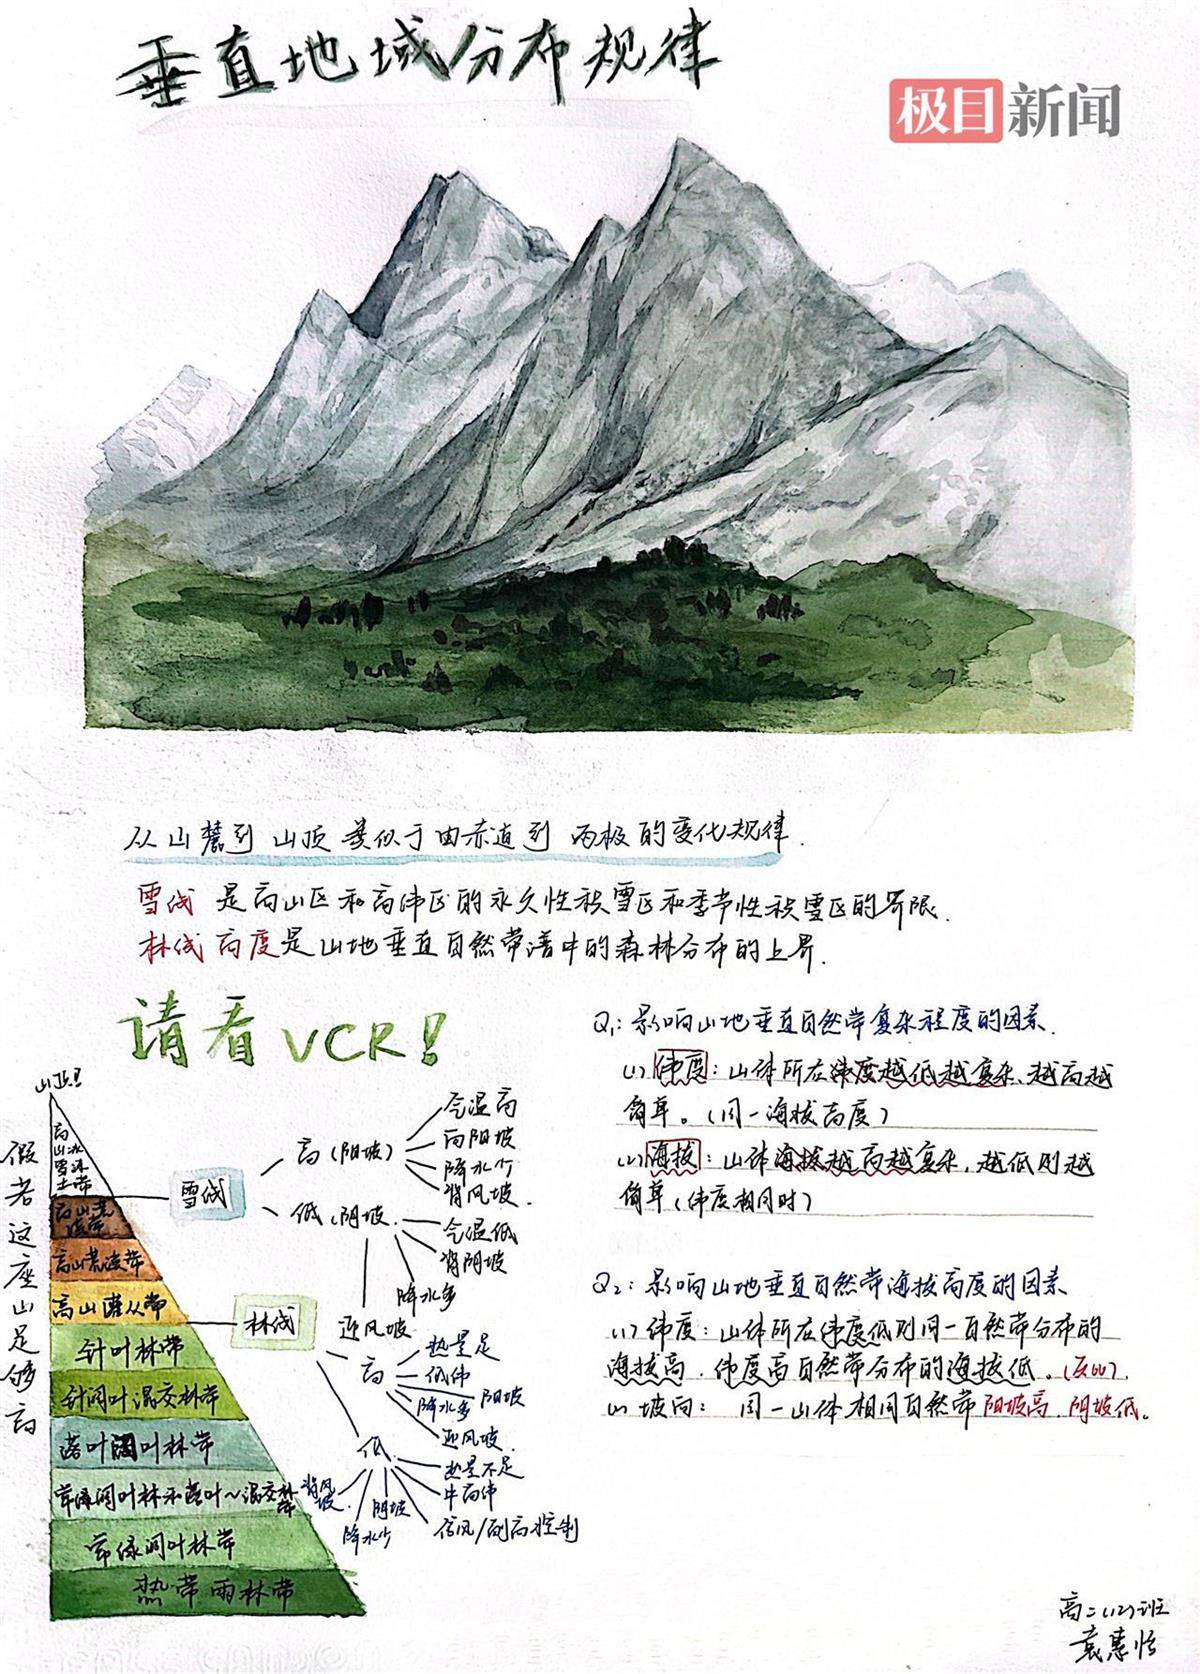 垂直地域分布规律
极目新闻
从山麓到山顶类似于由赤道到两极的变化规律.
雪线 是高山区和高纬区的永久性积雪区和季节性积雪区的界限.
林线高度是山地垂直自然带谱中的森林分布的上界.
请看VCR!
山顶!
假若这座山足够高
高山冰雪冰土带
高山荒漠带
高山荒漠带
高山灌丛带
针叶林带
针阔叶混交林带
落叶阔叶林带
常绿阔叶林和落叶~混交林带
常绿阔叶林带
热带雨林带
雪线
高(阳坡)
气温高
向阳坡
降水少
背风坡.
低(阴坡.
气温低
背阴坡
降水多
迎风坡
林线
高
热量足
低纬
降水多
阳坡
迎风坡.
低
热量不足
中高纬
信风/副高控制
阴坡
降水少
背风坡
Q1: 影响山地垂直自然带复杂程度的因素.
(1)纬度:山体所在纬度越低越复杂、越高越
简单。(同一海拔高度)
(2)海拔:山体海拔越高越复杂,越低则越
简单(纬度相同时)
Q2: 影响山地垂直自然带海拔高度的因素
(1)纬度:山体所在纬度低则同一自然带分布的
海拔高.纬度高自然带分布的海拔低。(反比).
(2)坡向: 同一山体相同自然带阳坡高.阴坡低。
高二(12)班
袁慧怡